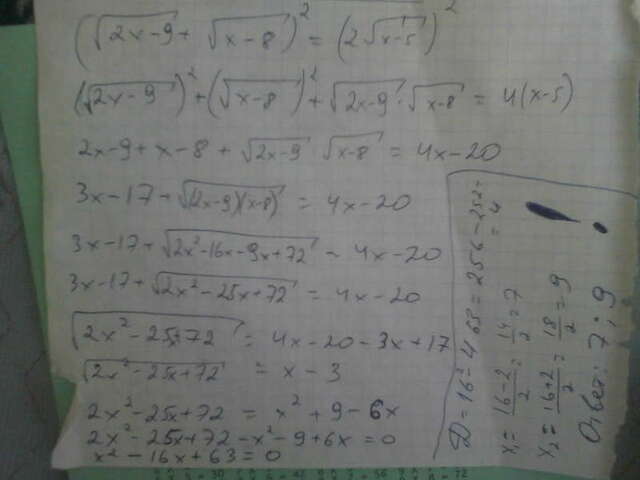 (√(2x-9) + √(x-8))² = (2√(x-5))²
(√(2x-9))² + (√(x-8))² + √(2x-9) · √(x-8) = 4(x-5)
2x-9+x-8 + √(2x-9) √(x-8) = 4x-20
3x-17+√((2x-9)(x-8)) = 4x-20
3x-17+√(2x²-16x-9x+72) = 4x-20
3x-17+√(2x²-25x+72) = 4x-20
√(2x²-25x+72) = 4x-20-3x+17
√(2x²-25x+72) = x-3
2x²-25x+72 = x²+9-6x
2x²-25x+72-x²-9+6x=0
x²-16x+63=0
D=16²-4·63=256-252=
=4
x₁= (16-2)/2 = 14/2 = 7
x₂= (16+2)/2 = 18/2 = 9
Ответ: 7; 9